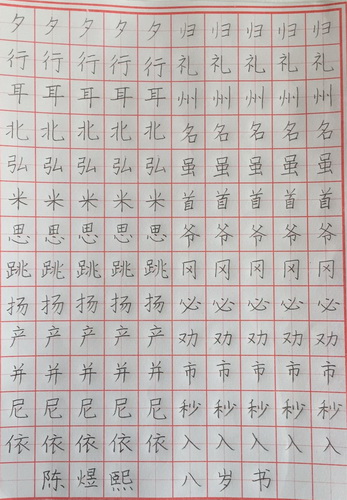 夕夕夕夕夕归归归归归
行行行行行礼礼礼礼礼
耳耳耳耳耳州州州州州
北北北北北名名名名名
弘弘弘弘弘虽虽虽虽虽
米米米米米首首首首首
思思思思思爷爷爷爷爷
跳跳跳跳跳冈冈冈冈冈
扬扬扬扬扬必必必必必
产产产产产劝劝劝劝劝
并并并并并市市市市市
尼尼尼尼尼秒秒秒秒秒
依依依依依入入入入入
陈煜熙 八岁书